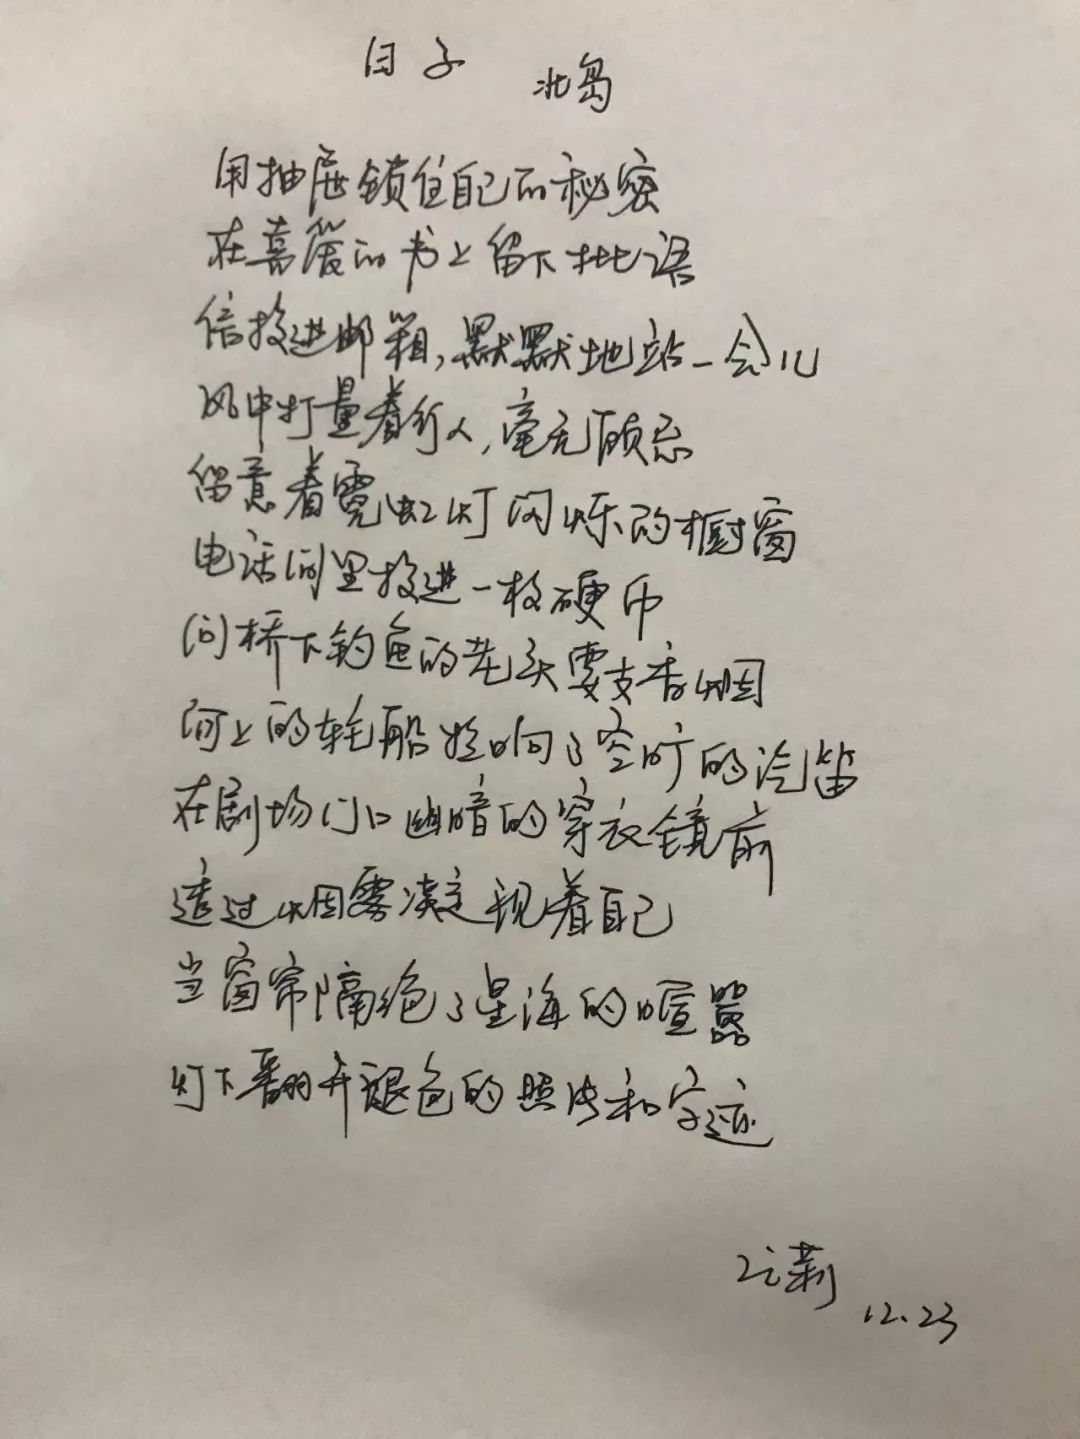 日子
北岛
用抽屉锁住自己的秘密
在喜爱的书上留下批语
信投进邮箱,默默地站一会儿
风中打量着行人,毫无顾忌
留意着霓虹灯闪烁的橱窗
电话间里投进一枚硬币
问桥下钓鱼的老头要支香烟
河上的轮船拉响了空旷的汽笛
在剧场门口幽暗的穿衣镜前
透过烟雾凝视着自己
当窗帘隔绝了星海的喧嚣
灯下翻开褪色的照片和字迹
莉
12.23